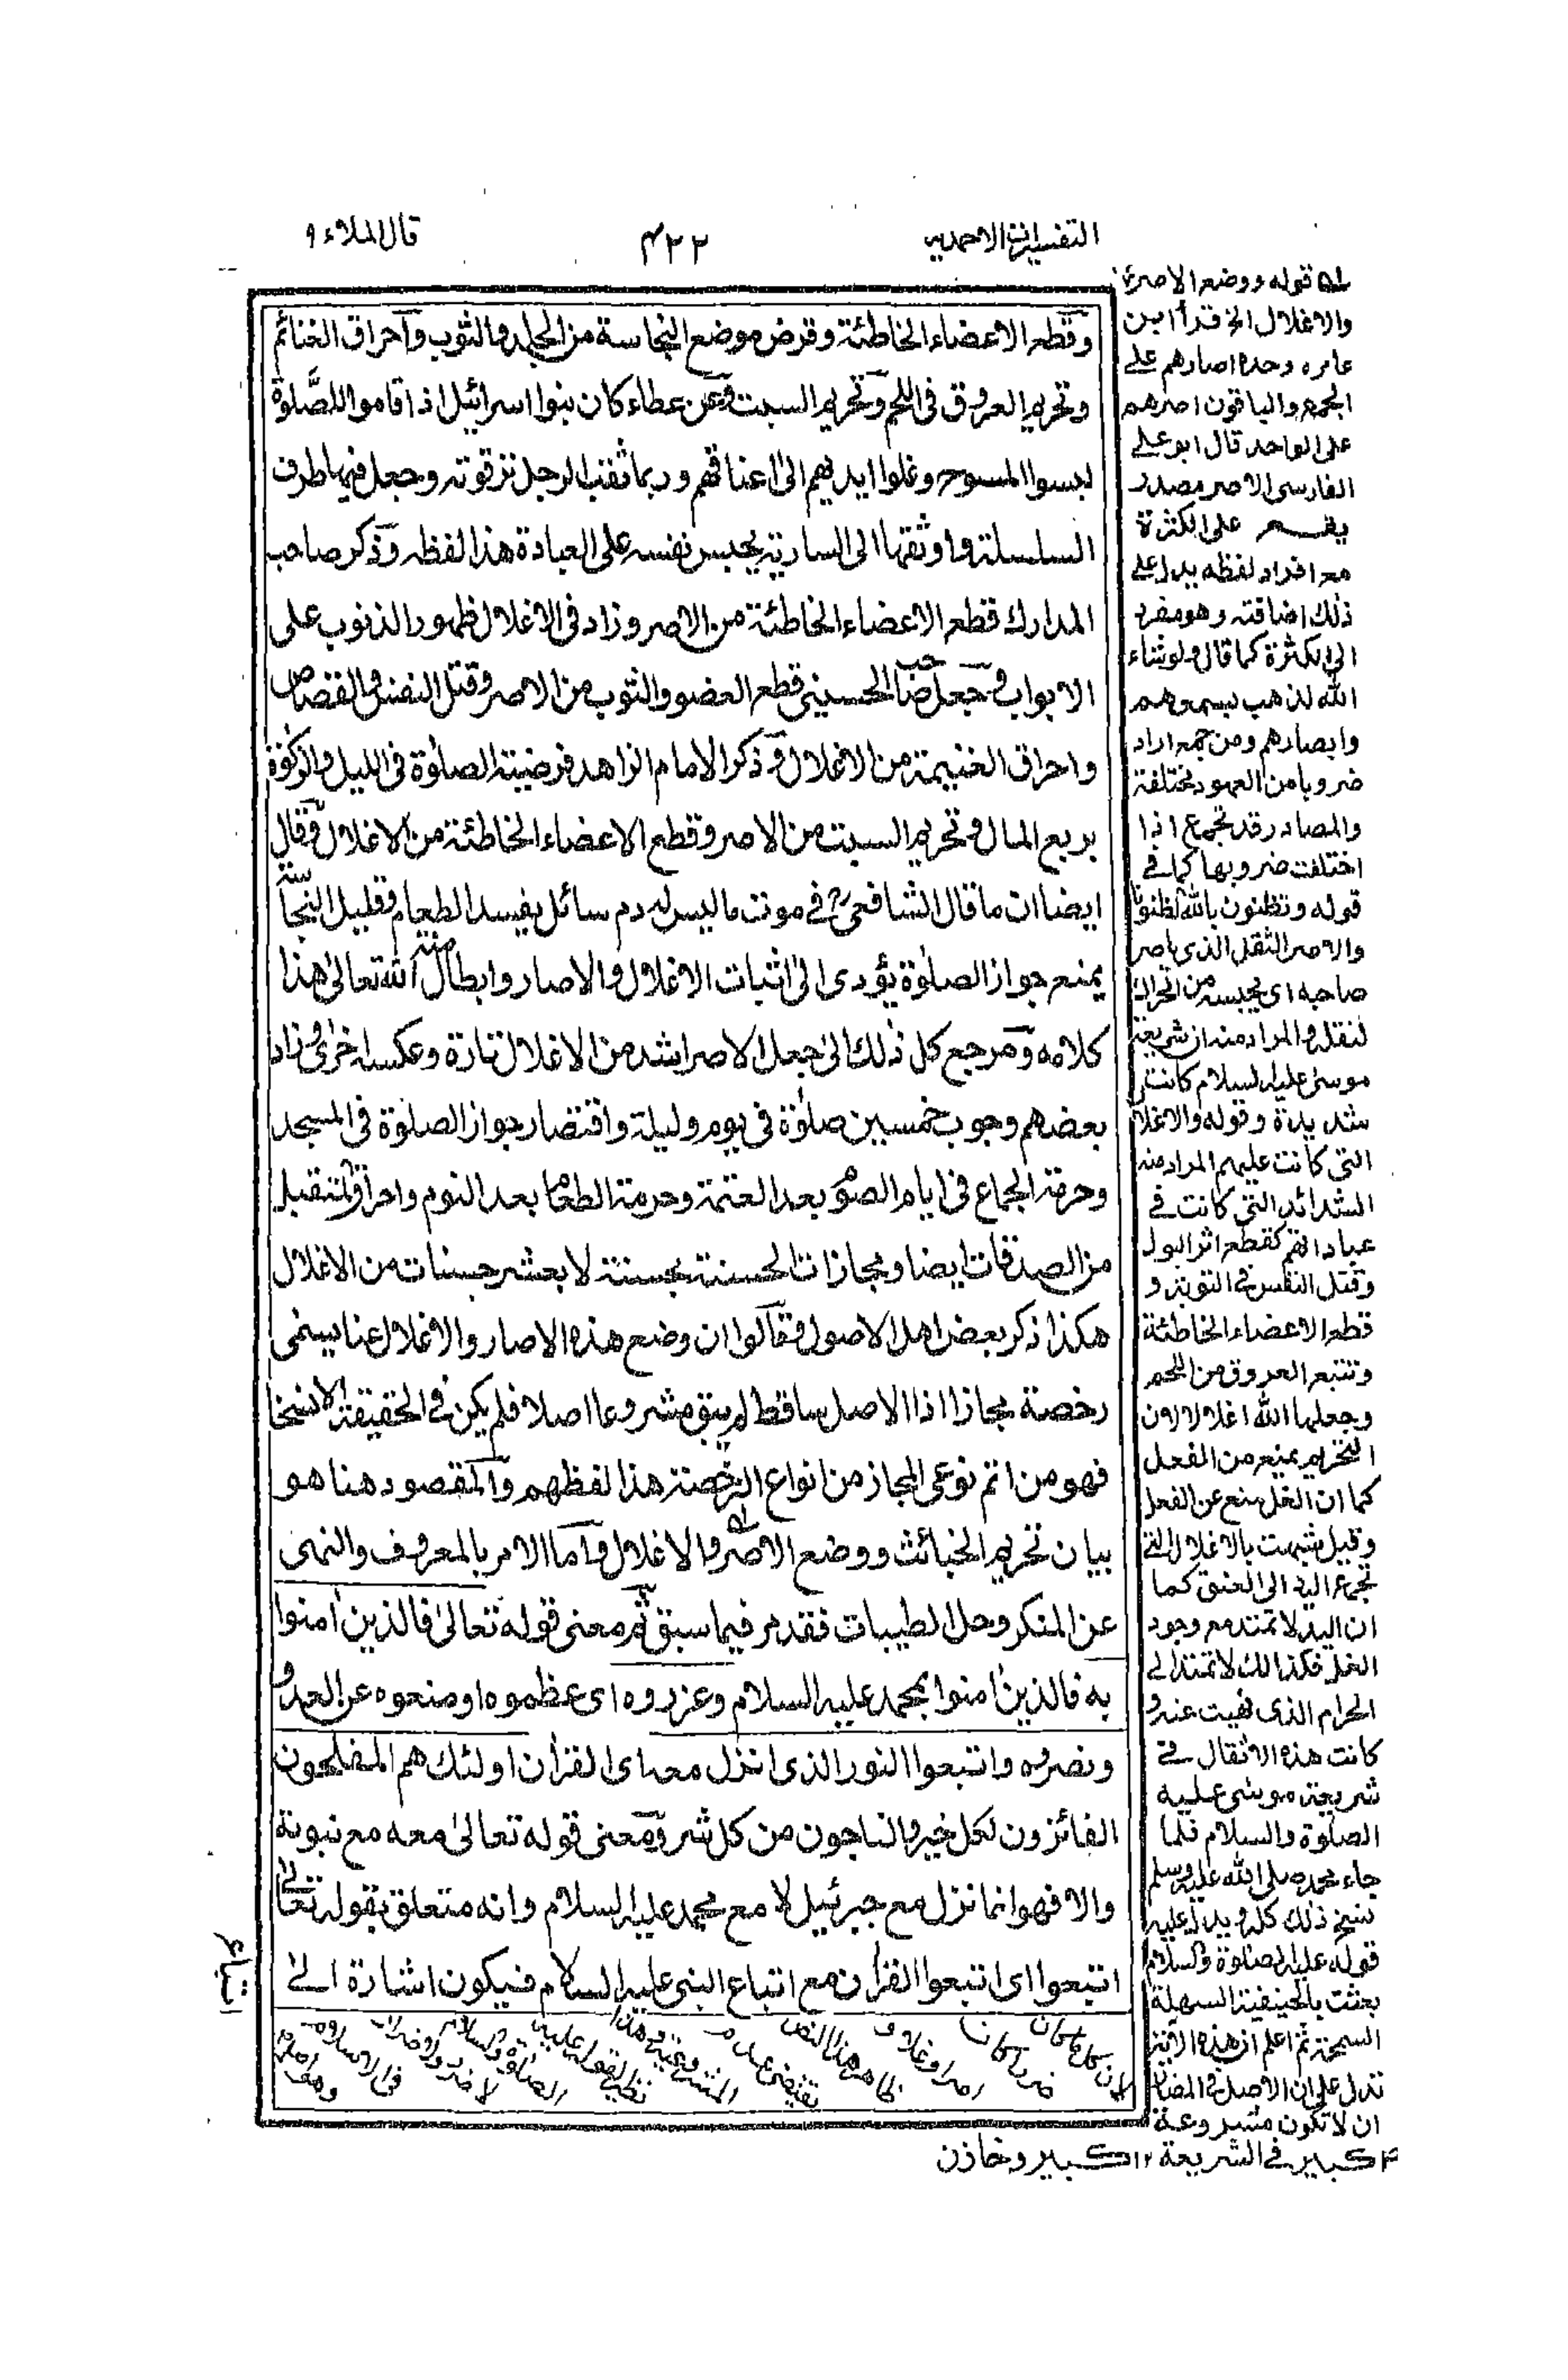 التفسيرات الاحمدية
۴۲۲
قال الملاء ۹
وقطع الاعضاء الخاطئة وقرض موضع النجاسة من الجلد والثوب واحراق الغنائم
وتحريم العروق فى اللحم وتحريم السبت وعن عطاء كان بنوا اسرائيل اذا قاموا للصلوة
لبسوا المسوح وغلوا ايديهم الى اعناقهم وربما ثقب الرجل ترقوته وجعل فيها طرف
السلسلة واوثقها الى السارية يحبس نفسه على العبادة هذا لفظه وذكر صاحب
المدارك قطع الاعضاء الخاطئة من الاصر وزاد فى الاغلال ظهور الذنوب على
الابواب وجعل صاحب الحسينى قطع العضو والثوب من الاصر وقتل النفس والقصاص
واحراق الغنيمة من الاغلال وذكر الامام الزاهد فرضية الصلوة فى الليل والزكوة
بربع المال وتحريم السبت من الاصر وقطع الاعضاء الخاطئة من الاغلال وقال
ايضا ان ما قال الشافعى رح فى موت ما ليس له دم سائل يفسد الطعام وقليل النجاسة
يمنع جواز الصلوة يؤدى الى اثبات الاغلال والاصار وابطال منة الله تعالى هذا
كلامه ومرجع كل ذلك الى جعل الاصر اشد من الاغلال تارة وعكسه اخرى وزاد
بعضهم وجوب خمسين صلوة فى يوم وليلة واقتصار جواز الصلوة فى المسجد
وحرمة الجماع فى ايام الصوم بعد العتمة وحرمة الطعام بعد النوم واحراق المتقبل
من الصدقات ايضا ومجازات الحسنة بحسنة لا بعشر حسنات من الاغلال
هكذا ذكر بعض اهل الاصول وقالوا ان وضع هذه الاصار والاغلال عنا يسمى
رخصة مجازا اذا الاصل ساقط لم يبق مشروعا اصلا فلم يكن فى الحقيقة الا نسخا
فهو من اتم نوعى المجاز من انواع الرخصة هذا لفظهم والمقصود هنا هو
بيان تحريم الخبائث ووضع الاصر والاغلال واما الامر بالمعروف والنهى
عن المنكر وحل الطيبات فقد مر فيما سبق ثم معنى قوله تعالى فالذين امنوا
به فالذين امنوا بمحمد عليه السلام وعزروه اى عظموه او منعوه عن العدو
ونصروه واتبعوا النور الذى انزل معه اى القران اولئك هم المفلحون
الفائزون لكل خير والناجون من كل شر ومعنى قوله تعالى معه مع نبوته
والا فهو انما نزل مع جبرئيل لا مع محمد عليه السلام وانه متعلق بقوله تعالى
اتبعوا اى اتبعوا القران مع اتباع النبى عليه السلام فيكون اشارة الى
اتباع
له قوله ووضع الاصر
والاغلال الخ قرأ ابن
عامر وحده اصارهم على
الجمع والباقون اصرهم
على الواحد قال ابو على
الفارسى الاصر مصدر
يقع على الكثرة
مع افراد لفظه يدل على
ذلك اضافته وهو مفرد
الى الكثرة كما قال ولو شاء
الله لذهب بسمعهم
وابصارهم ومن جمع اراد
ضروبا من العهود مختلفة
والمصادر قد تجمع اذا
اختلفت ضروبها كما فى
قوله وتظنون بالله الظنونا
والاصر الثقل الذى ياصر
صاحبه اى يحبسه من الحراك
لثقله والمراد منه ان شريعة
موسى عليه السلام كانت
شديدة وقوله والاغلال
التى كانت عليهم المراد منه
الشدائد التى كانت فى
عباداتهم كقطع اثر البول
وقتل النفس فى التوبة و
قطع الاعضاء الخاطئة
وتتبع العروق من اللحم
وجعلها الله اغلالا لان
التحريم يمنع من الفعل
كما ان الغل يمنع عن الفعل
وقيل شبهت بالاغلال التى
تجمع اليد الى العنق كما
ان اليد لا تمتد مع وجود
الغل فكذالك لا تمتد الى
الحرام الذى نهيت عنه و
كانت هذه الاثقال فى
شريعة موسى عليه
الصلوة والسلام فلما
جاء محمد صلى الله عليه وسلم
نسخ ذلك كله ويدل عليه
قوله عليه الصلوة والسلام
بعثت بالحنيفية السهلة
السمحة ثم اعلم ان هذه الاية
تدل على ان الاصل فى المضار
ان لا تكون مشروعة
لان كل ما كان
ضررا كان
اصرا وغلا و
ظاهر هذا النص
يقتضى عدم
المشروعية وهذا
نظير لقوله عليه
الصلوة والسلام
لا ضرر ولا ضرار
فى الاسلام
وهو اصل
كبير فى الشريعة ۱۲ كبير وخازن